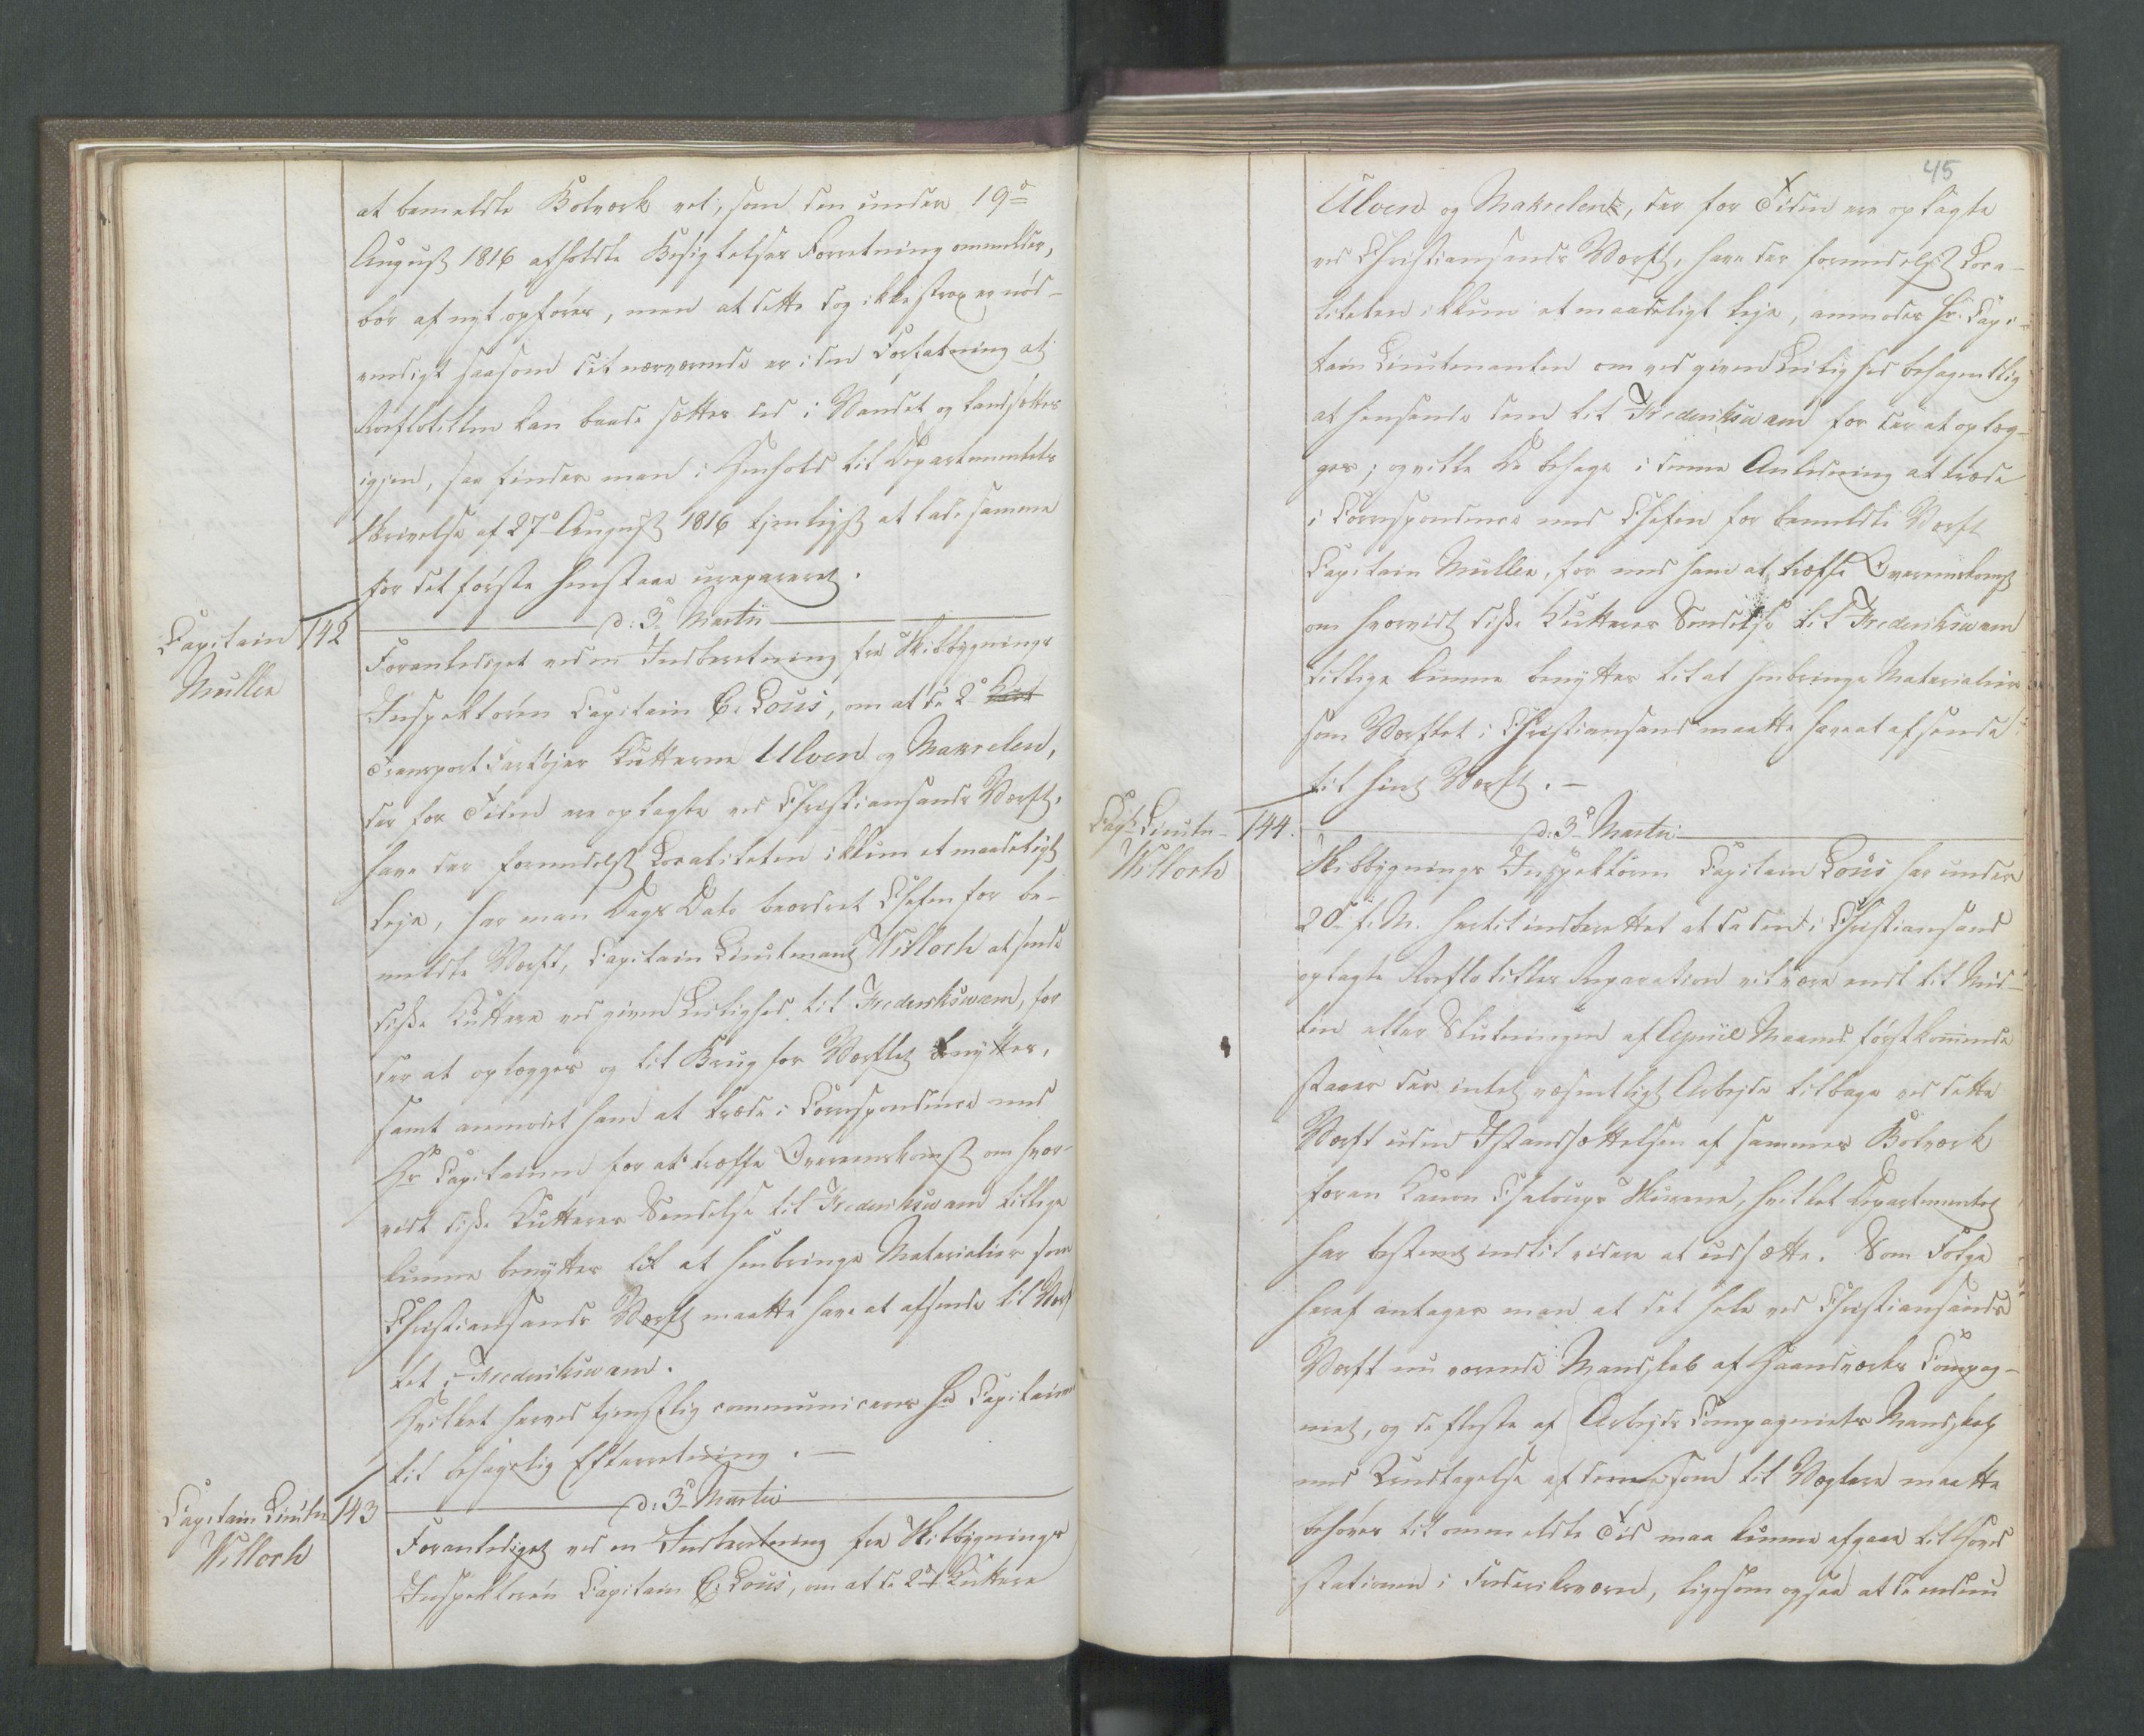 at bemeldte Bolværk vel, som den under 19de
August 1816 afholdte Besigtelses Forretning ommelder,
bør af nyt opføres, men at dette dog ikke strax er nød-
vendigt saasom det nærværende er i den Forfatning at
Roeflotillen kan baade sættes ud i Vandet og landsættes
igjen, saa finder man i Henhold til Departementets
Skrivelse af 27de August 1816 tjenligst at lade samme
for det første henstaae unrepareret.
Capitain 142 d: 3de Martii
Müller
Foranlediget ved en Indberetning fra Skibbygnings
Inspekteuren Capitain E: Lous, om at de 2de
Transport Fartøjer Kutterne Ulven og Makrelen,
der for Tiden ere oplagte ved Christiansands Værft,
have der formedelst Localiteten ikkun et maadeligt
Leje, har man Dags Dato beordret Chefen for be-
meldte Værft, Capitain Lieutenant Willoch at sende
disse Kuttere ved given Leilighed til Frederiksværn, for
der at oplægges og til Brug for Værftet benyttes,
samt anmodet ham at træde i Correspondence med
Hr Capitainen for at træffe Overeenskomst om hvor-
vidt disse Kutteres Sendelse til Frederiksværn tillige
kunne benyttes til at henbringe Materialier som
Christiansands Værft maatte have at afsende til Værf
tet i Frederiksværn.
Hvilket herved tjenstlig communiceres Hr Capitainen
til behagelig Efterretning. —
Capitain Lieutn 143 d: 3de Martii
Willoch
Foranlediget ved en Indberetning fra Skibbygnings
Inspekteuren Capitain E: Lous, om at de 2de Kuttere
45
Ulven og Makrelen, der for Tiden ere oplagte
ved Christiansands Værft, have der formedelst Loca-
liteten ikkun et maadeligt Leje, anmodes Hr. Capi-
tain Lieutenanten om ved given Leilighed behagentlig
at hensende dem til Frederiksværn for der at oplæg-
ges; og ville De behage i denne Anledning at træde
i Correspondence med Chefen for bemeldte Værft
Capitain Müller, for med ham at træffe Overeenskomst
om hvorvidt disse Kutteres Sendelse til Frederiksværn
tillige kunne benyttes til at henbringe Materialier
som Værftet i Christiansand maatte have at afsende
til hint Værft. —
Capt: Lieutn- 144. d: 3de Martii
Willoch
Skibbygnings Inspekteuren Capitain Lous har under
20de f. M. hertil indberettet at da den i Christiansand
oplagte Roeflotilles Reparation vil være endt til Mid-
ten eller Slutningen af April Maaned førstkommende
staaer der intet væsentligt Arbejde tilbage ved dette
Værft uden Istandsættelsen af sammes Bolværk
foran Kanon Chaloups Skurene, hvilket Departementet
har bestemt indtil videre at udsætte. Som Følge
heraf antages man at det hele ved Christiansands
Værft nu værende Mandskab af Haandværks Compag-
niet, og de fleste af Arbejds Compagniets Mandskab
med Undtagelse af dem som til Vægtere maatte
behøves til ommeldte Tid maa kunne afgaae til Hoved
stationen i Frederiksværn, ligesom ogsaa at de endnu